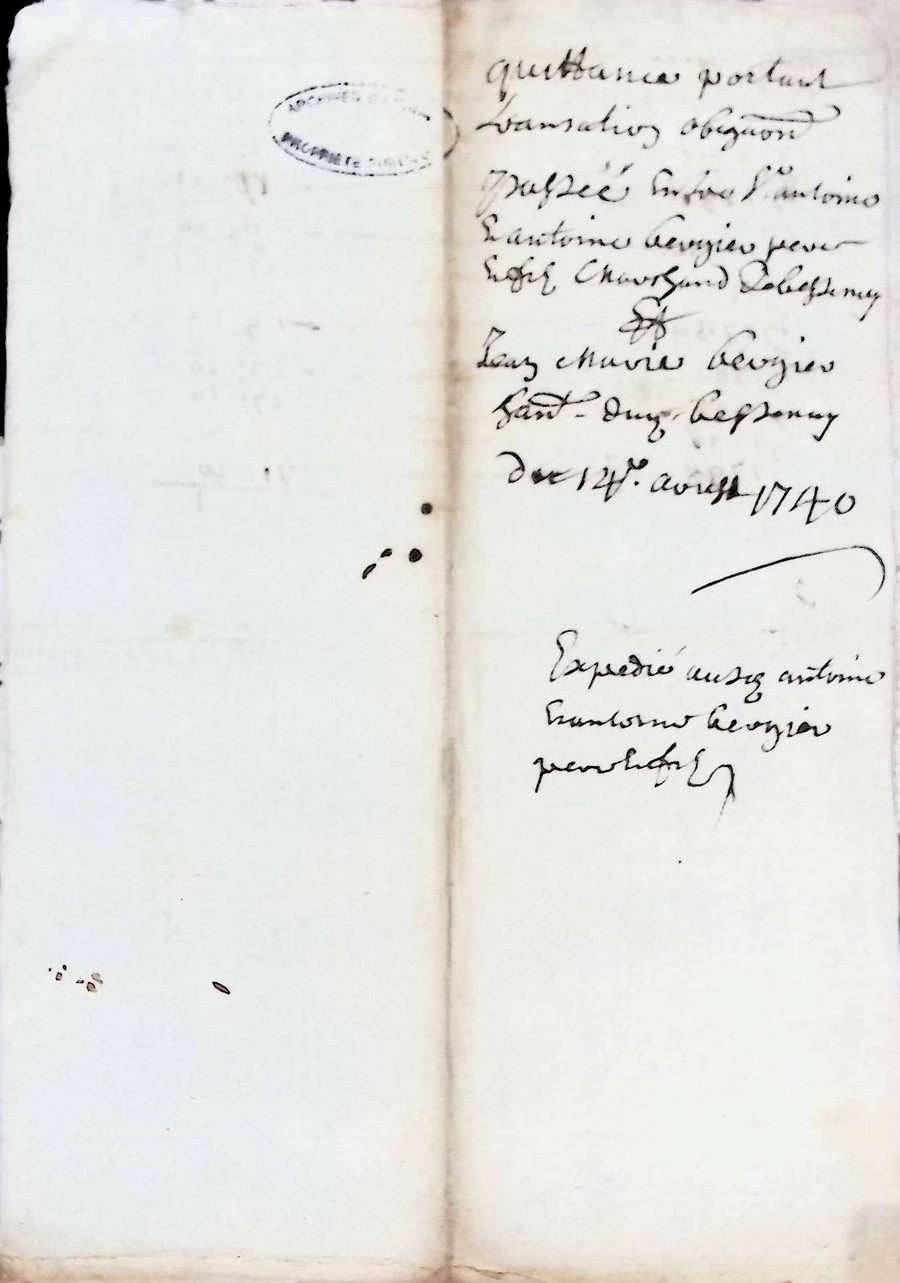 ARCHIVES
PROPRIETE PUBLIQUE
quittance portant
transaction obligaõn
passéé Entre Sr. antoine
Et antoine bergier pere
Et fils marchand de bessenay
Et
Jean marie bergier
hant. dud. bessenay
du 14e. aoust 1740
Expedié ausd antoine
Et antoine bergier
pere Et fils